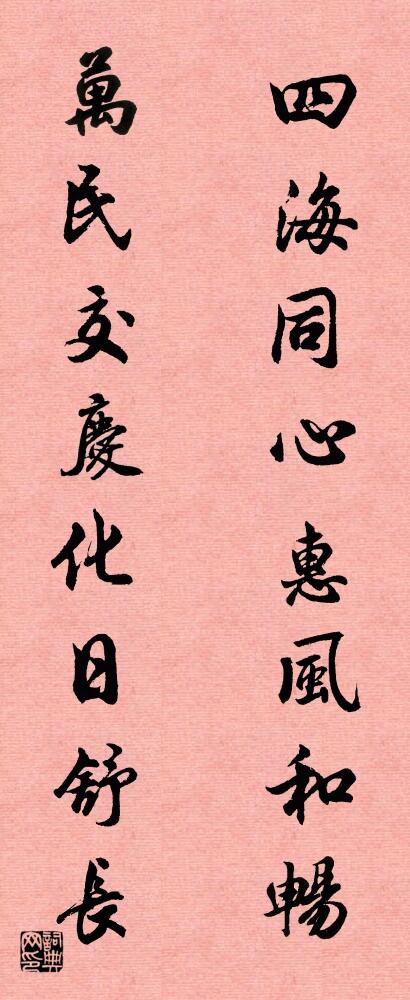 四海同心惠風和暢
萬民交慶化日舒長
詞典网印